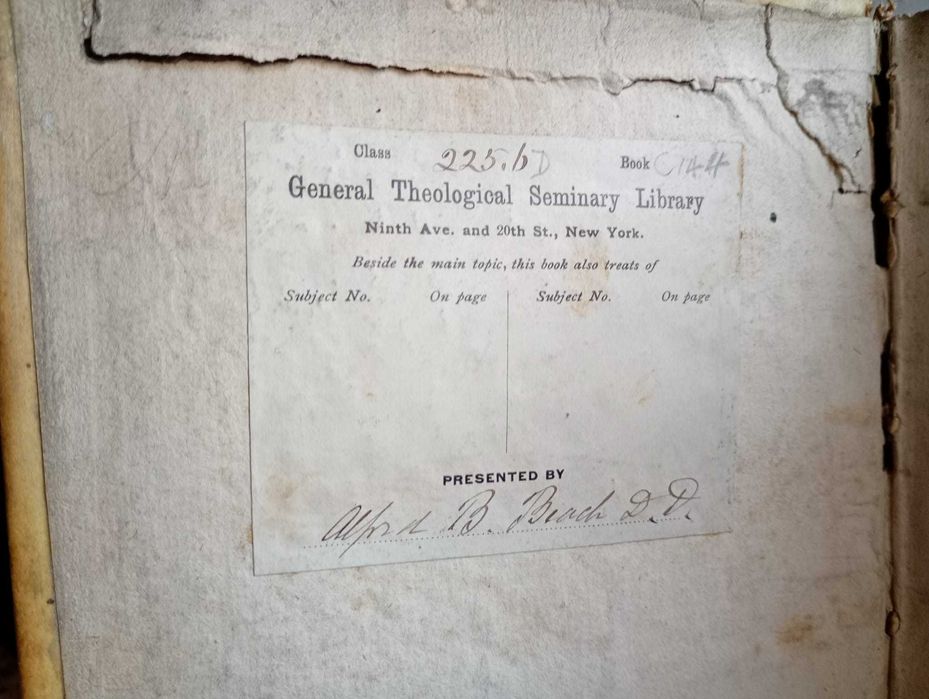 Class 225.b D Book C144
General Theological Seminary Library
Ninth Ave. and 20th St., New York.
Beside the main topic, this book also treats of
Subject No. On page Subject No. On page
PRESENTED BY
Alfred B. Beach D.D.